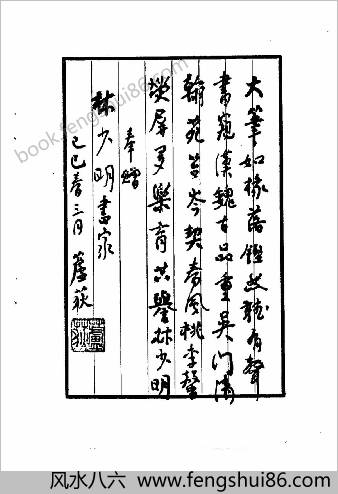 大筆如椽落鑑 聽有聲
書窺漢魏古品重吳門清
翰苑苔岑契春風桃李馨
熒屏多樂育共譽林少明
奉贈
林少明書家
己巳春三月 蘆荻
蘆荻
book.fengshui86.com
风水八六 www.fengshui86.com